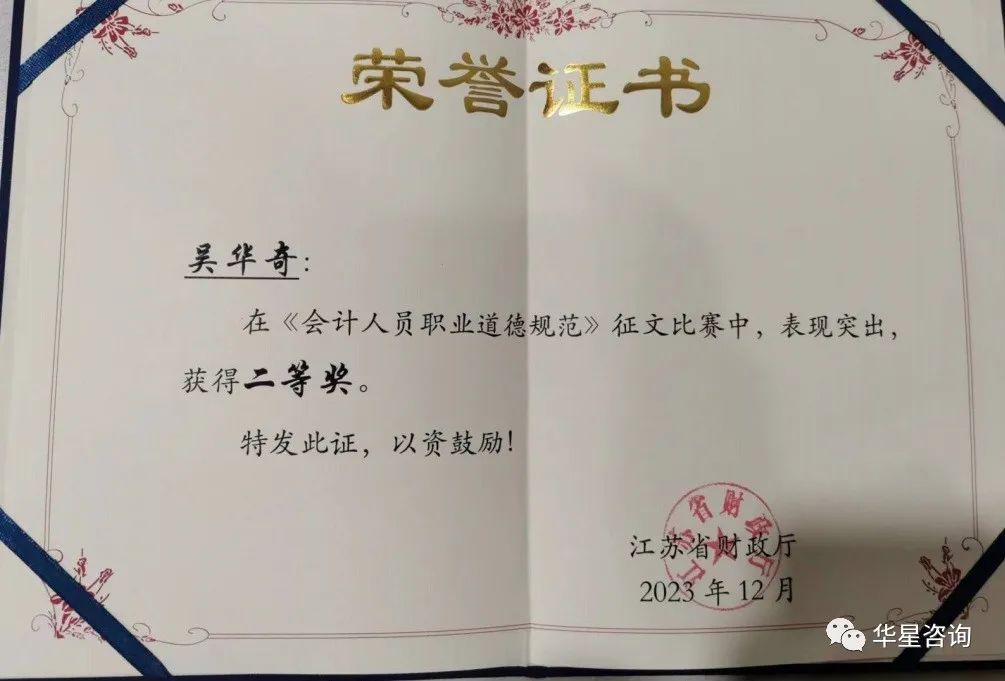 荣誉证书
吴华奇：
在《会计人员职业道德规范》征文比赛中，表现突出，
获得二等奖。
特发此证，以资鼓励！
江苏省财政厅
江苏省财政厅
2023 年 12 月
华星咨询